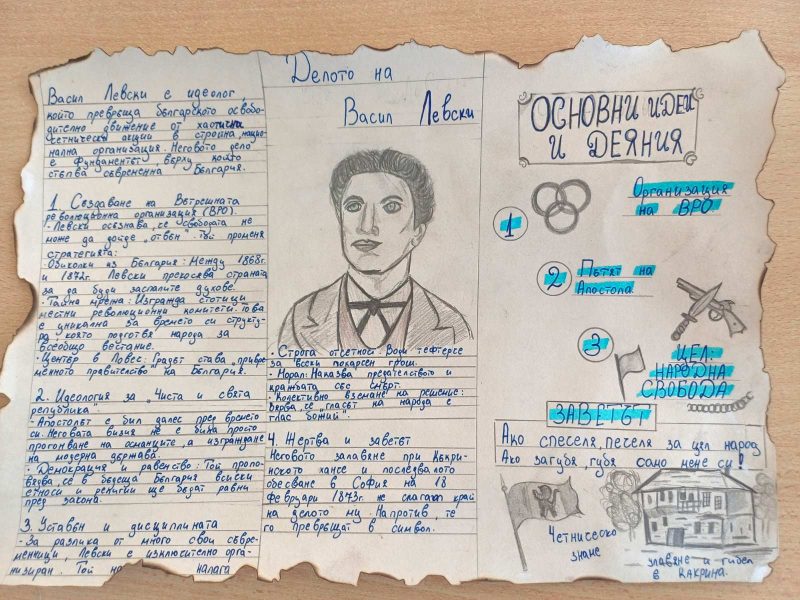 Васил Левски е идеолог,
който превръща българското освобо-
дително движение от хаотични
четнически акции в стройна, нацио-
нална организация. Неговото дело
е фундаментът върху който
стъпва съвременна България.
1. Създаване на Вътрешната
революционна организация (ВРО).
- Левски осъзнава, че свободата не
може да дойде „отвън“. Той променя
стратегията:
- Обиколки из България: Между 1868г.
и 1872г. Левски прекосява страната
за да буди заспалите духове.
- Тайна мрежа: Изгражда стотици
местни революционни комитети. Това
е уникална за времето си структу-
ра, която подготвя народа за
всеобщо въстание.
- Център в Ловеч: Градът става „привре-
менното правителство“ на България.
2. Идеология за „Чиста и свята
република“.
- Апостолът е бил далеч пред времето
си. Неговата визия не е била просто
прогонване на османците, а изграждане
на модерна държава.
- Демокрация и равенство: Той пропо-
вядва, че в бъдеща България всички
етноси и религии ще бъдат равни
пред закона.
3. Уставът и дисциплината
- За разлика от много свои съвре-
менници, Левски е изключително орга-
низиран. Той налага
Делото на
Васил Левски
- Строга отчетност: Води тефтерче
за всеки похарчен грош.
- Морал: Наказва предателството и
кражбата със смърт.
- Колективно вземане на решение:
Вярва, че „гласът на народа е
глас божий“.
4. Жертва и завет
Неговото залавяне при Къкри-
нското ханче и последвалото
обесване в София на 18
февруари 1873г. не слагат край
на делото му. Напротив, те
го превръщат в символ.
ОСНОВНИ ИДЕИ
И ДЕЯНИЯ
1 Организация
на ВРО
2 Пътят на
Апостола
3 ЦЕЛ:
НАРОДНА
СВОБОДА
ЗАВЕТЪТ
Ако спечеля, печеля за цял народ
Ако загубя, губя само мене си!
Четническо
знаме
залавяне и гибел
в Какрина.